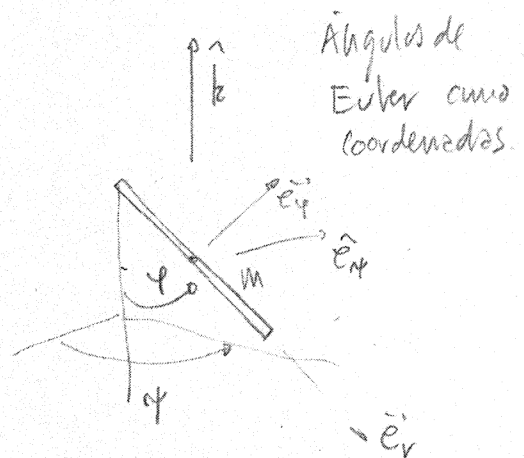 Ángulos de
Euler como
coordenadas.
k̂
e⃗φ
êψ
φ
m
ψ
e⃗r